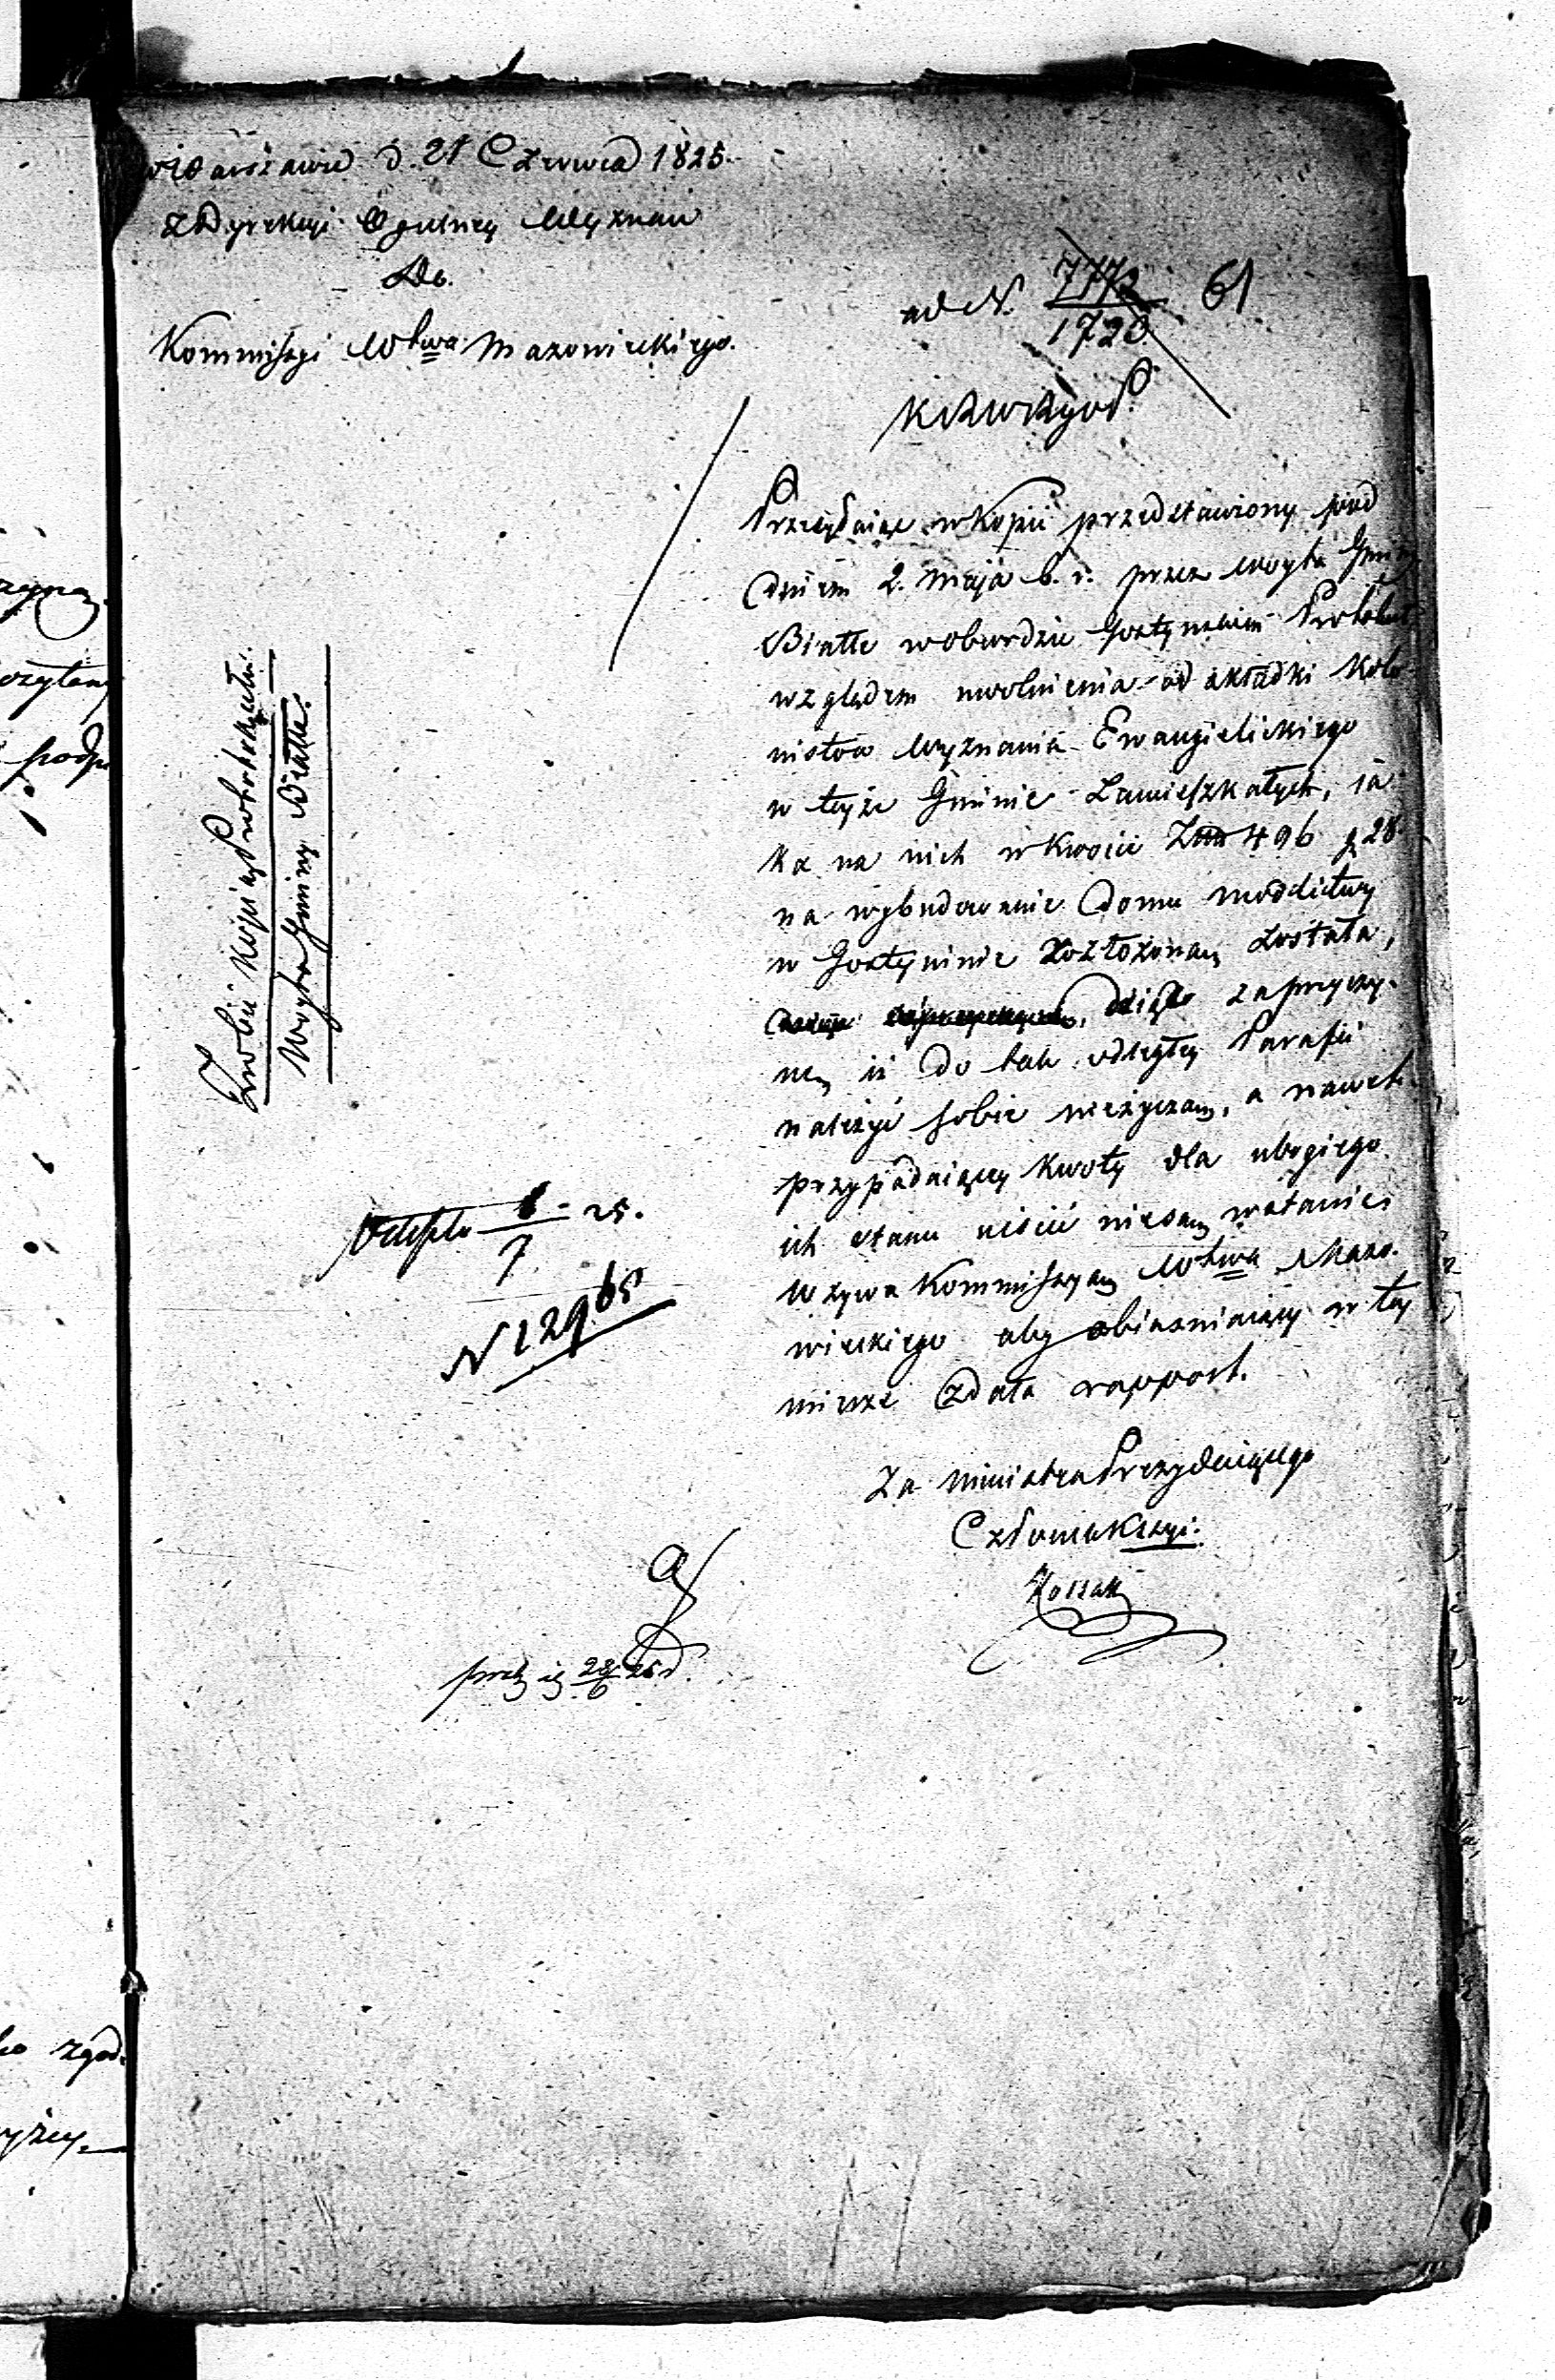 w Warszawie d. 21 Czerwca 1825.
z Dyrekcyi Ogulney Wyznań
Do.
Kommissyi Wtwa Mazowieckiego.
ad N. 7772/1720 61
KRWRyOP.
Przesyłaiąc w kopii przedstawiony pod
dniem 2. Maja b. r. przez Woyta Gminy
Białłe w obwodzie Gostynskim
względem uwolnienia od składki kolo-
nistów wyznania Ewangielickiego
w teyże Gminie Zamieszkałych, ia-
ka na nich w kwocie 496 g 28
na wybudowanie Domu modlitwy
w Gostyninie rozłożoną została,
zaprzyczy-
nę iż do tak odległey Parafii
należyć sobie nieżyczą, a nawet
przypadaiącey kwoty dla ubogiego
ich stanu uiścić niesą w stanie;
wzywa Kommissyą Wtwa Mazo-
wieckiego aby obiasniaiący w tey
mierze zdała rapport.
Za Ministra Prezyduiącego
Członek
Kossak
Woyta Gminy Białłe.
7
N 12965
28/6 25
zyna
czytany
podp
zgod